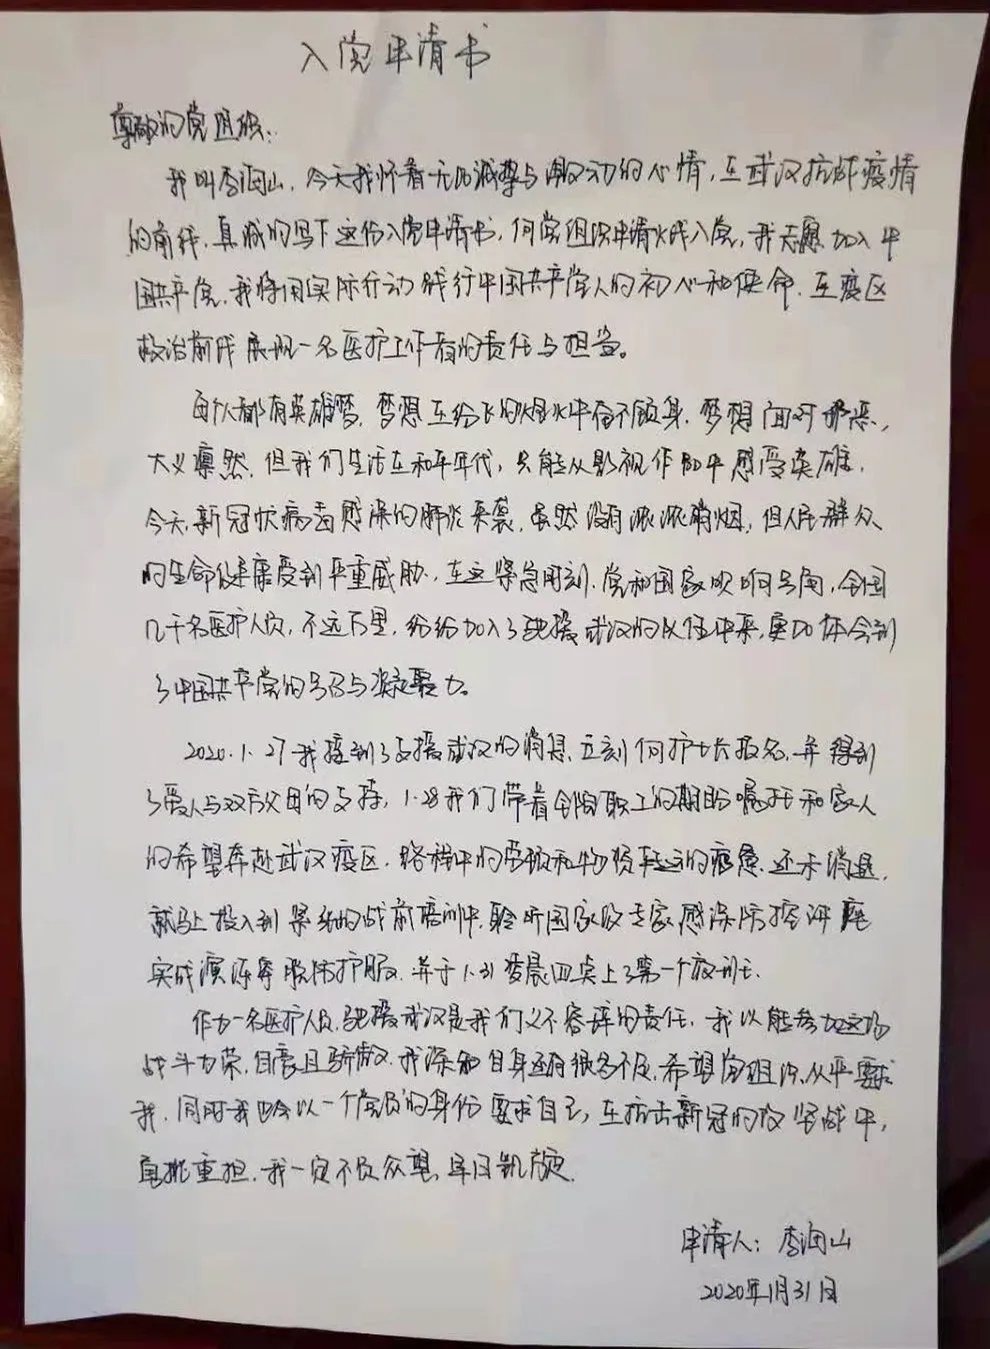 入党申请书
尊敬的党组织：
我叫李润山，今天我怀着无比诚挚与激动的心情，在武汉抗炸疫情
的前线，真诚的写下这份入党申请书，向党组织申请火线入党，我志愿加入中
国共产党，我将用实际行动践行中国共产党人的初心和使命，在疫区
救治前线展现一名医护工作者的责任与担当。
每个人都有英雄梦，梦想在纷飞的烟火中奋不顾身，梦想面对邪恶，
大义凛然，但我们生活在和平年代，只能从影视作品中感受英雄，
今天，新冠状病毒感染的肺炎来袭，虽然没有浓浓硝烟，但人民群众
的生命健康受到严重威胁，在这紧急时刻，党和国家吹响号角，全国
几千名医护人员，不远万里，纷纷加入了驰援武汉的队伍中来，更加体会到
了中国共产党的号召与凝聚力。
2020.1.27我接到了支援武汉的消息，立刻向护士长报名，并得到
了爱人与双方父母的支持，1.28我们带着全院职工的期盼嘱托和家人
的希望奔赴武汉疫区，路程中的劳顿和物资转运的疲惫，还未消退，
就马上投入到紧张的战前培训中，聆听国家级专家感染防控讲座
实战演练穿脱防护服，并于1.31凌晨四点上了第一个夜班。
作为一名医护人员，驰援武汉是我们义不容辞的责任，我以能参加这场
战斗为荣，自豪且骄傲，我深知自身还有很多不足，希望党组织，从严要求
我，同时我也会以一个党员的身份要求自己，在抗击新冠的攻坚战中，
肩挑重担，我一定不负众望，早日凯旋。
申请人：李润山
2020年1月31日